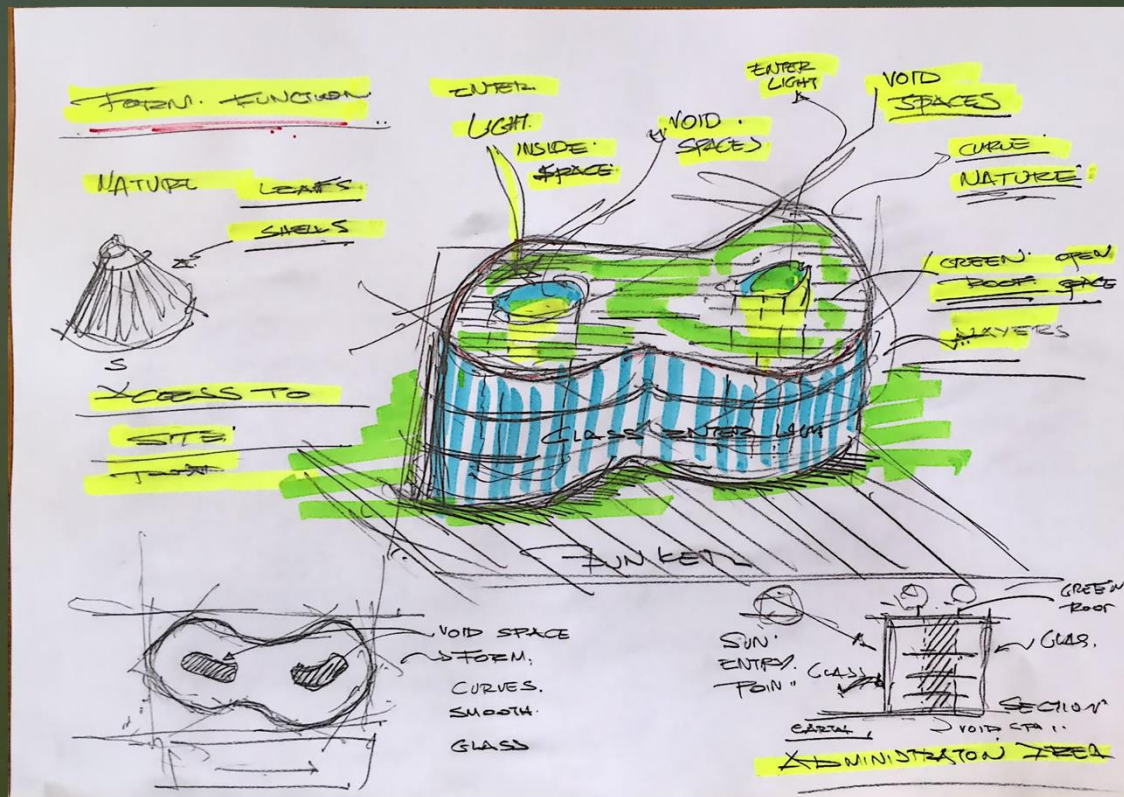 FORM. FUNCTION
NATURE LEAFS
SHELLS
S
ACCESS TO
SITE
ENTER
LIGHT.
INSIDE
SPACE
VOID
SPACES
ENTER
LIGHT
VOID
SPACES
CURVE
NATURE
GREEN OPEN
ROOF SPACE
LAYERS
GLASS ENTER LIGH
VOID SPACE
FORM.
CURVES.
SMOOTH.
GLASS
SUN
ENTRY.
POIN
GLASS
GREEN
ROOF
GLAS.
SECTION
EARTH
VOID
ADMINISTRATON AREA